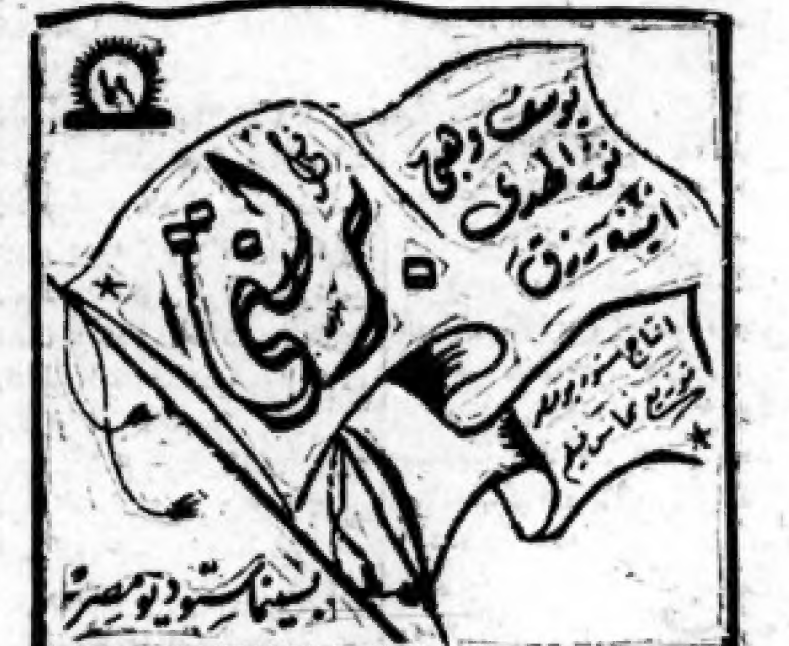 يوسف وهبى
نور الهدى
امينة رزق
انتاج ستوديو
توزيع نحاس فيلم
بسينما ستوديو مصر